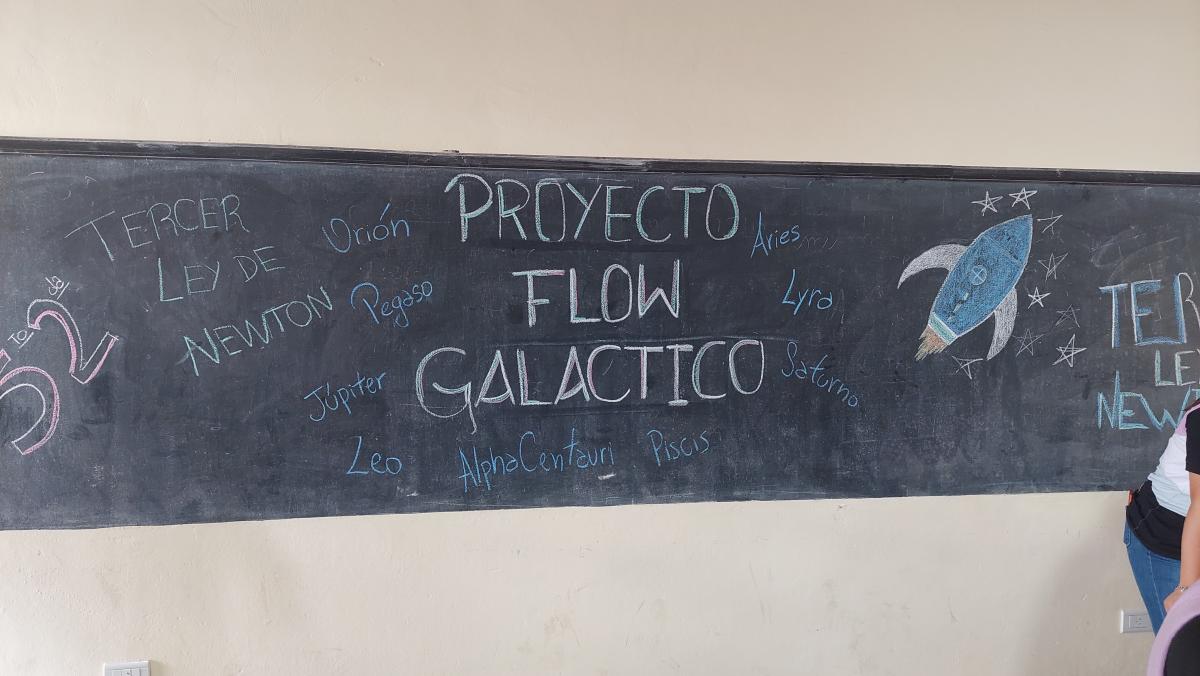 5to 2da
TERCER
LEY DE
NEWTON
Orión
Pegaso
Júpiter
Leo
PROYECTO
FLOW
GALACTICO
AlphaCentauri
Piscis
Aries
Lyra
Saturno
TER
LE
NEWT